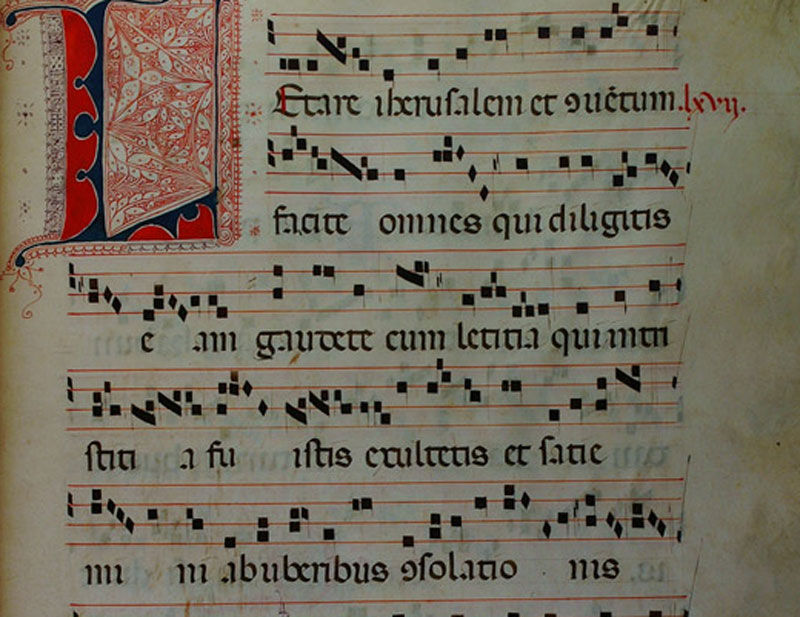 LEtare iherusalem et ꝯuētum .lxvij.
facite omnes qui diligitis
e am gaudete cum letitia qui intri
stiti a fu istis exultetis et satie
mi ni ab uberibus ꝯsolatio nis